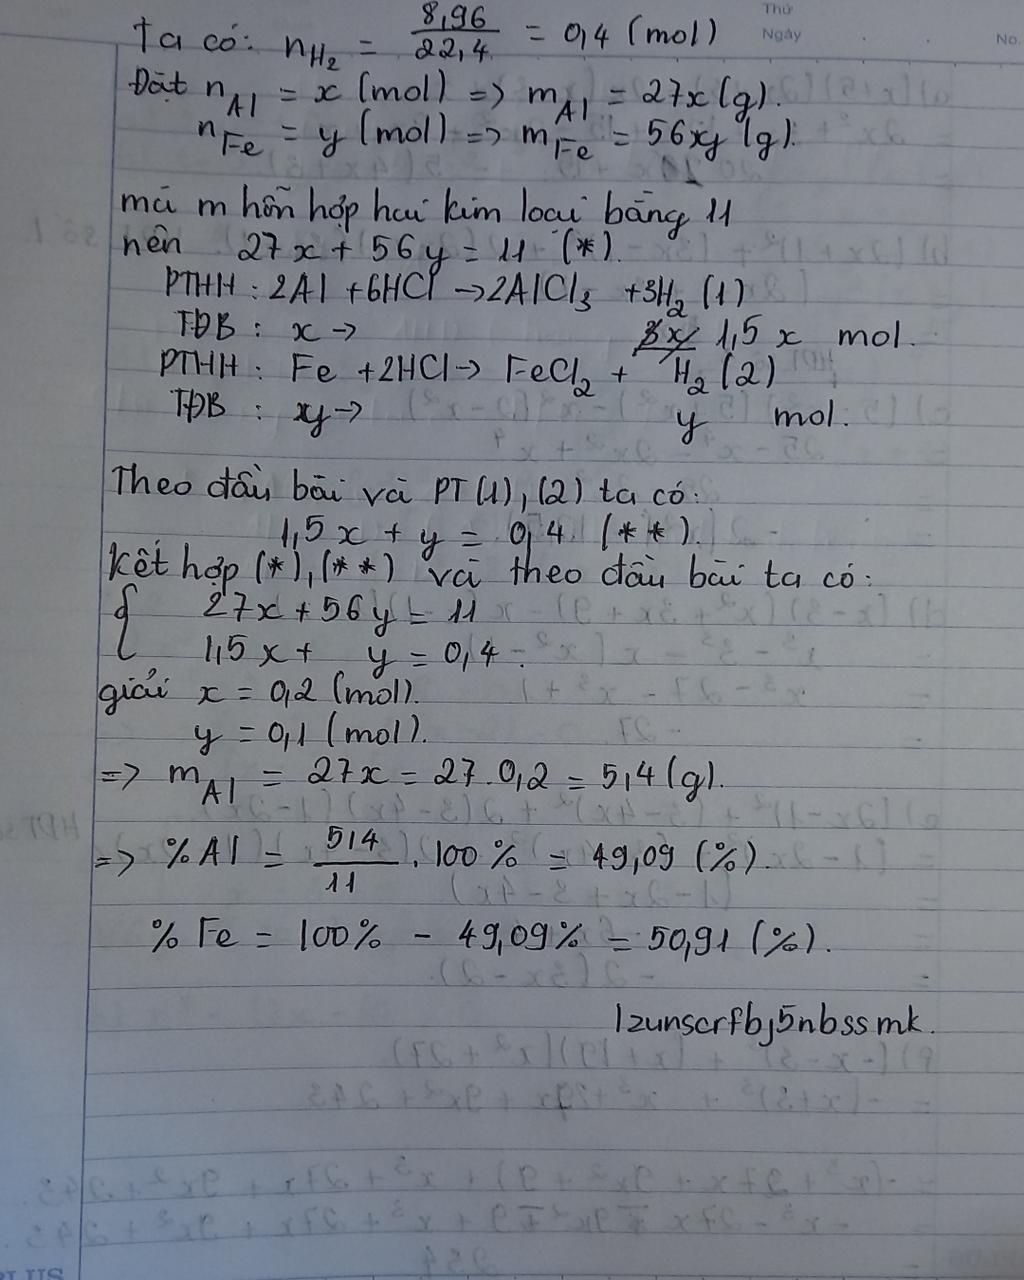 Thứ
Ngày
No.
Ta có: n_H₂ = 8,96/22,4 = 0,4 (mol)
Đặt n_Al = x (mol) => m_Al = 27x (g).
n_Fe = y (mol) => m_Fe = 56y (g).
mà m hỗn hợp hai kim loại bằng 11
nên 27x + 56y = 11 (*).
PTHH : 2Al + 6HCl → 2AlCl₃ + 3H₂ (1)
TĐB : x → 1,5 x mol.
PTHH : Fe + 2HCl → FeCl₂ + H₂ (2)
TĐB : y → y mol.
Theo đầu bài và PT (1), (2) ta có:
1,5x + y = 0,4 (**).
Kết hợp (*), (**) và theo đầu bài ta có:
{ 27x + 56y = 11
1,5x + y = 0,4.
giải x = 0,2 (mol).
y = 0,1 (mol).
=> m_Al = 27x = 27.0,2 = 5,4 (g).
=> % Al = 5,4/11 . 100 % = 49,09 (%).
% Fe = 100% - 49,09% = 50,91 (%).
lzunscrfbj5nbssmk.